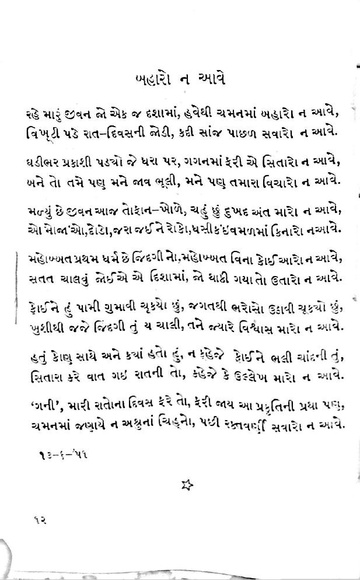 બહારો ન આવે
રહે મારું જીવન જો એક જ દશામાં, હવેથી ચમનમાં બહારો ન આવે,
વિખૂટી પડે રાત-દિવસની જોડી, કદી સાંજ પાછળ સવારો ન આવે.
ઘડીભર પ્રકાશી પડ્યો જે ધરા પર, ગગનમાં ફરી એ સિતારો ન આવે,
બને તો તમે પણ મને જાવ ભૂલી, મને પણ તમારા વિચારો ન આવે.
મળ્યું છે જીવન આજ તોફાન-ખોળે, ચહું છું દુખદ અંત મારો ન આવે,
ઓ મોજાંઓ, દોડો, જરા જઈને રોકો, ધસી કંઈ વમળમાં કિનારો ન આવે.
મહોબ્બત પ્રથમ ધર્મ છે જિંદગીનો, મહોબ્બત વિના કોઈ આરો ન આવે,
સતત ચાલવું જોઈએ એ દિશામાં, જો થાકી ગયા તો ઉતારો ન આવે.
કોઈને હું પામી ગુમાવી ચૂક્યો છું, જગતથી ભરોસો ઉઠાવી ચૂક્યો છું,
ખુશીથી જજે જિંદગી તું ય ચાલી, તને જ્યારે વિશ્વાસ મારો ન આવે.
હતું કોણ સાથે અને ક્યાં હતો હું, ન કહેજે કોઈને ભલી ચાંદની તું,
સિતારા કરે વાત ગઈ રાતની તો, કહેજે કે ઉલ્લેખ મારો ન આવે.
‘ગની’, મારી રાતોના દિવસ ફરે તો, ફરી જાય આ પ્રકૃતિની પ્રથા પણ,
ચમનમાં જણાયે ન અશ્રુનાં ચિહ્નો, પછી રક્તવર્ણી સવારો ન આવે.
૧૩-૬-’૫૬
૧૨